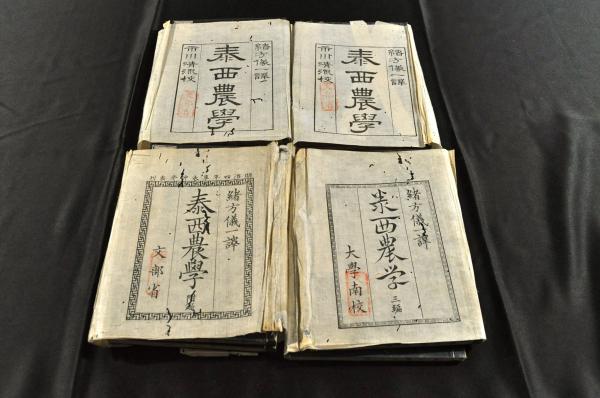 緒方儀一譯
泰西農學
市川清流校
緒方儀一譯
泰西農學
市川清流校
緒方儀一譯
泰西農学
三編
大學南校
緒方儀一譯
泰西農學
文部省